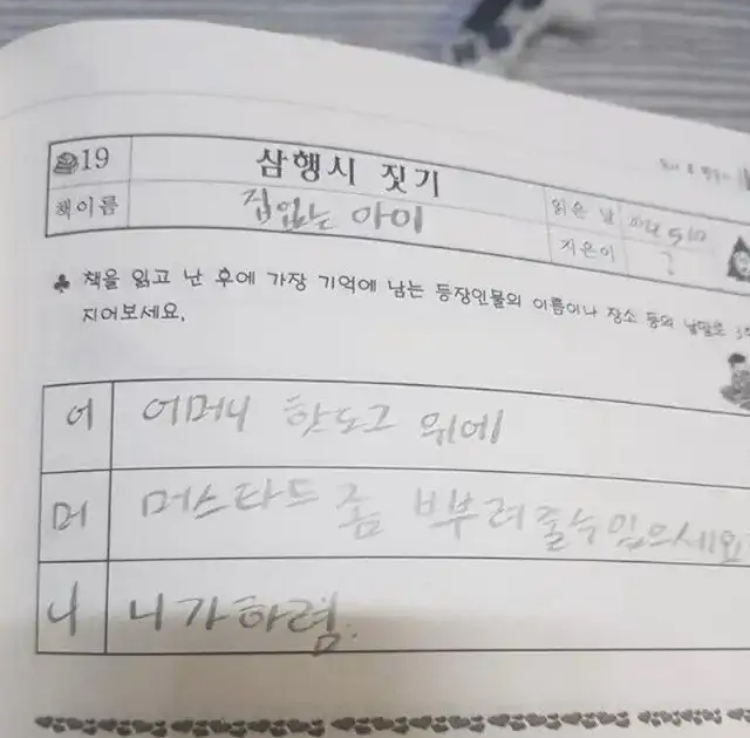 19 삼행시 짓기
책이름 집없는 아이 읽은 날
지은이 ?
♣ 책을 읽고 난 후에 가장 기억에 남는 등장인물의 이름이나 장소 등의 낱말로 3
지어보세요.
어 어머니 핫도그 위에
머 머스타드 좀 뿌려줄수있으세요
니 니가하렴.